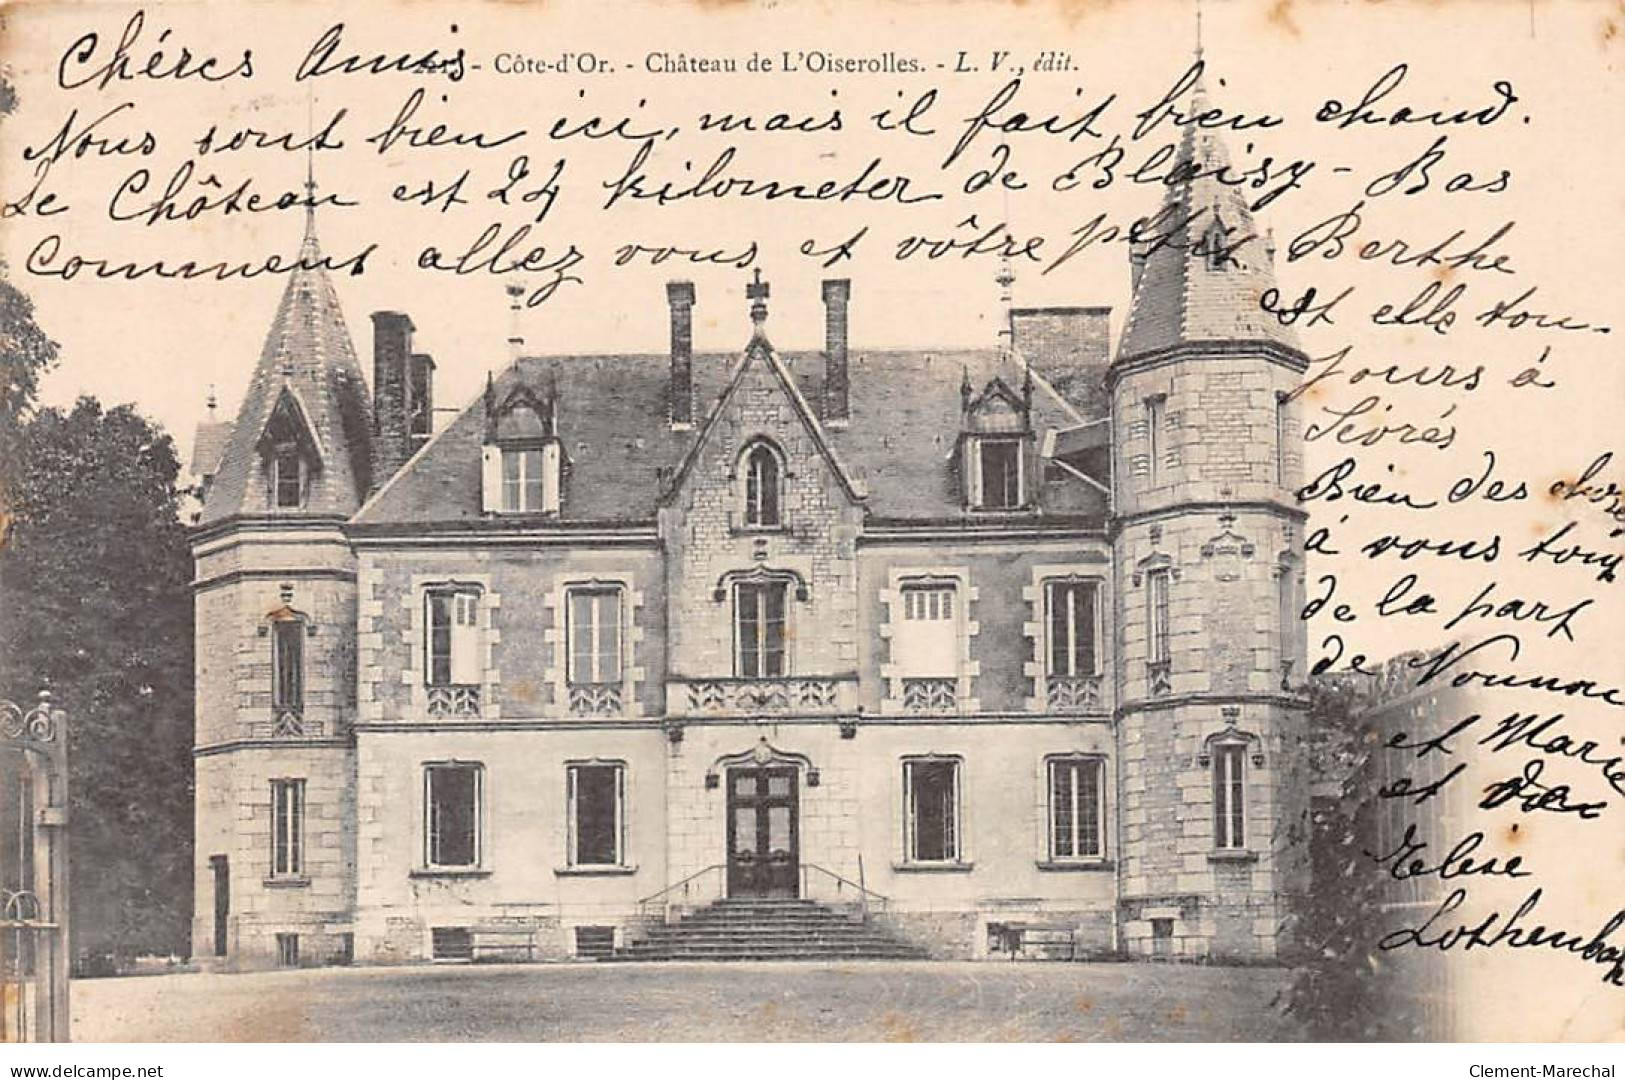 Chéres Amis
- Côte-d'Or. - Château de L'Oiserolles. - L. V., édit.
Nous sont bien ici, mais il fait bien chaud.
Le Château est 24 kilometer de Blaisy-Bas
comment allez vous et vôtre petit Berthe
est elle tou-
jours à
Sévrés
Bien des chose
à vous tous
de la part
de
et Marie
et
Elise
Clement-Marechal
delcampe.net